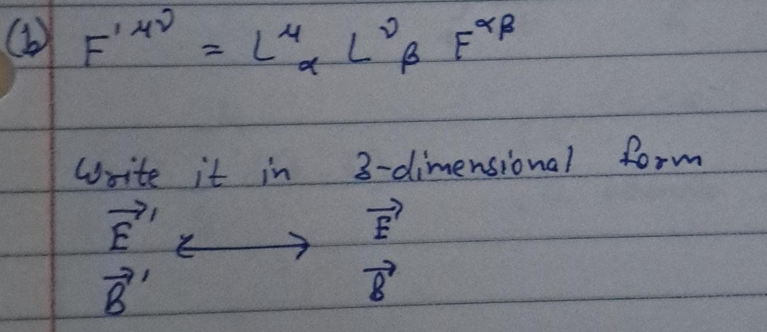 (b) F'^μν = L^μ_α L^ν_β F^αβ
Write it in 3-dimensional form
E⃗' ⟷ E⃗
B⃗' B⃗